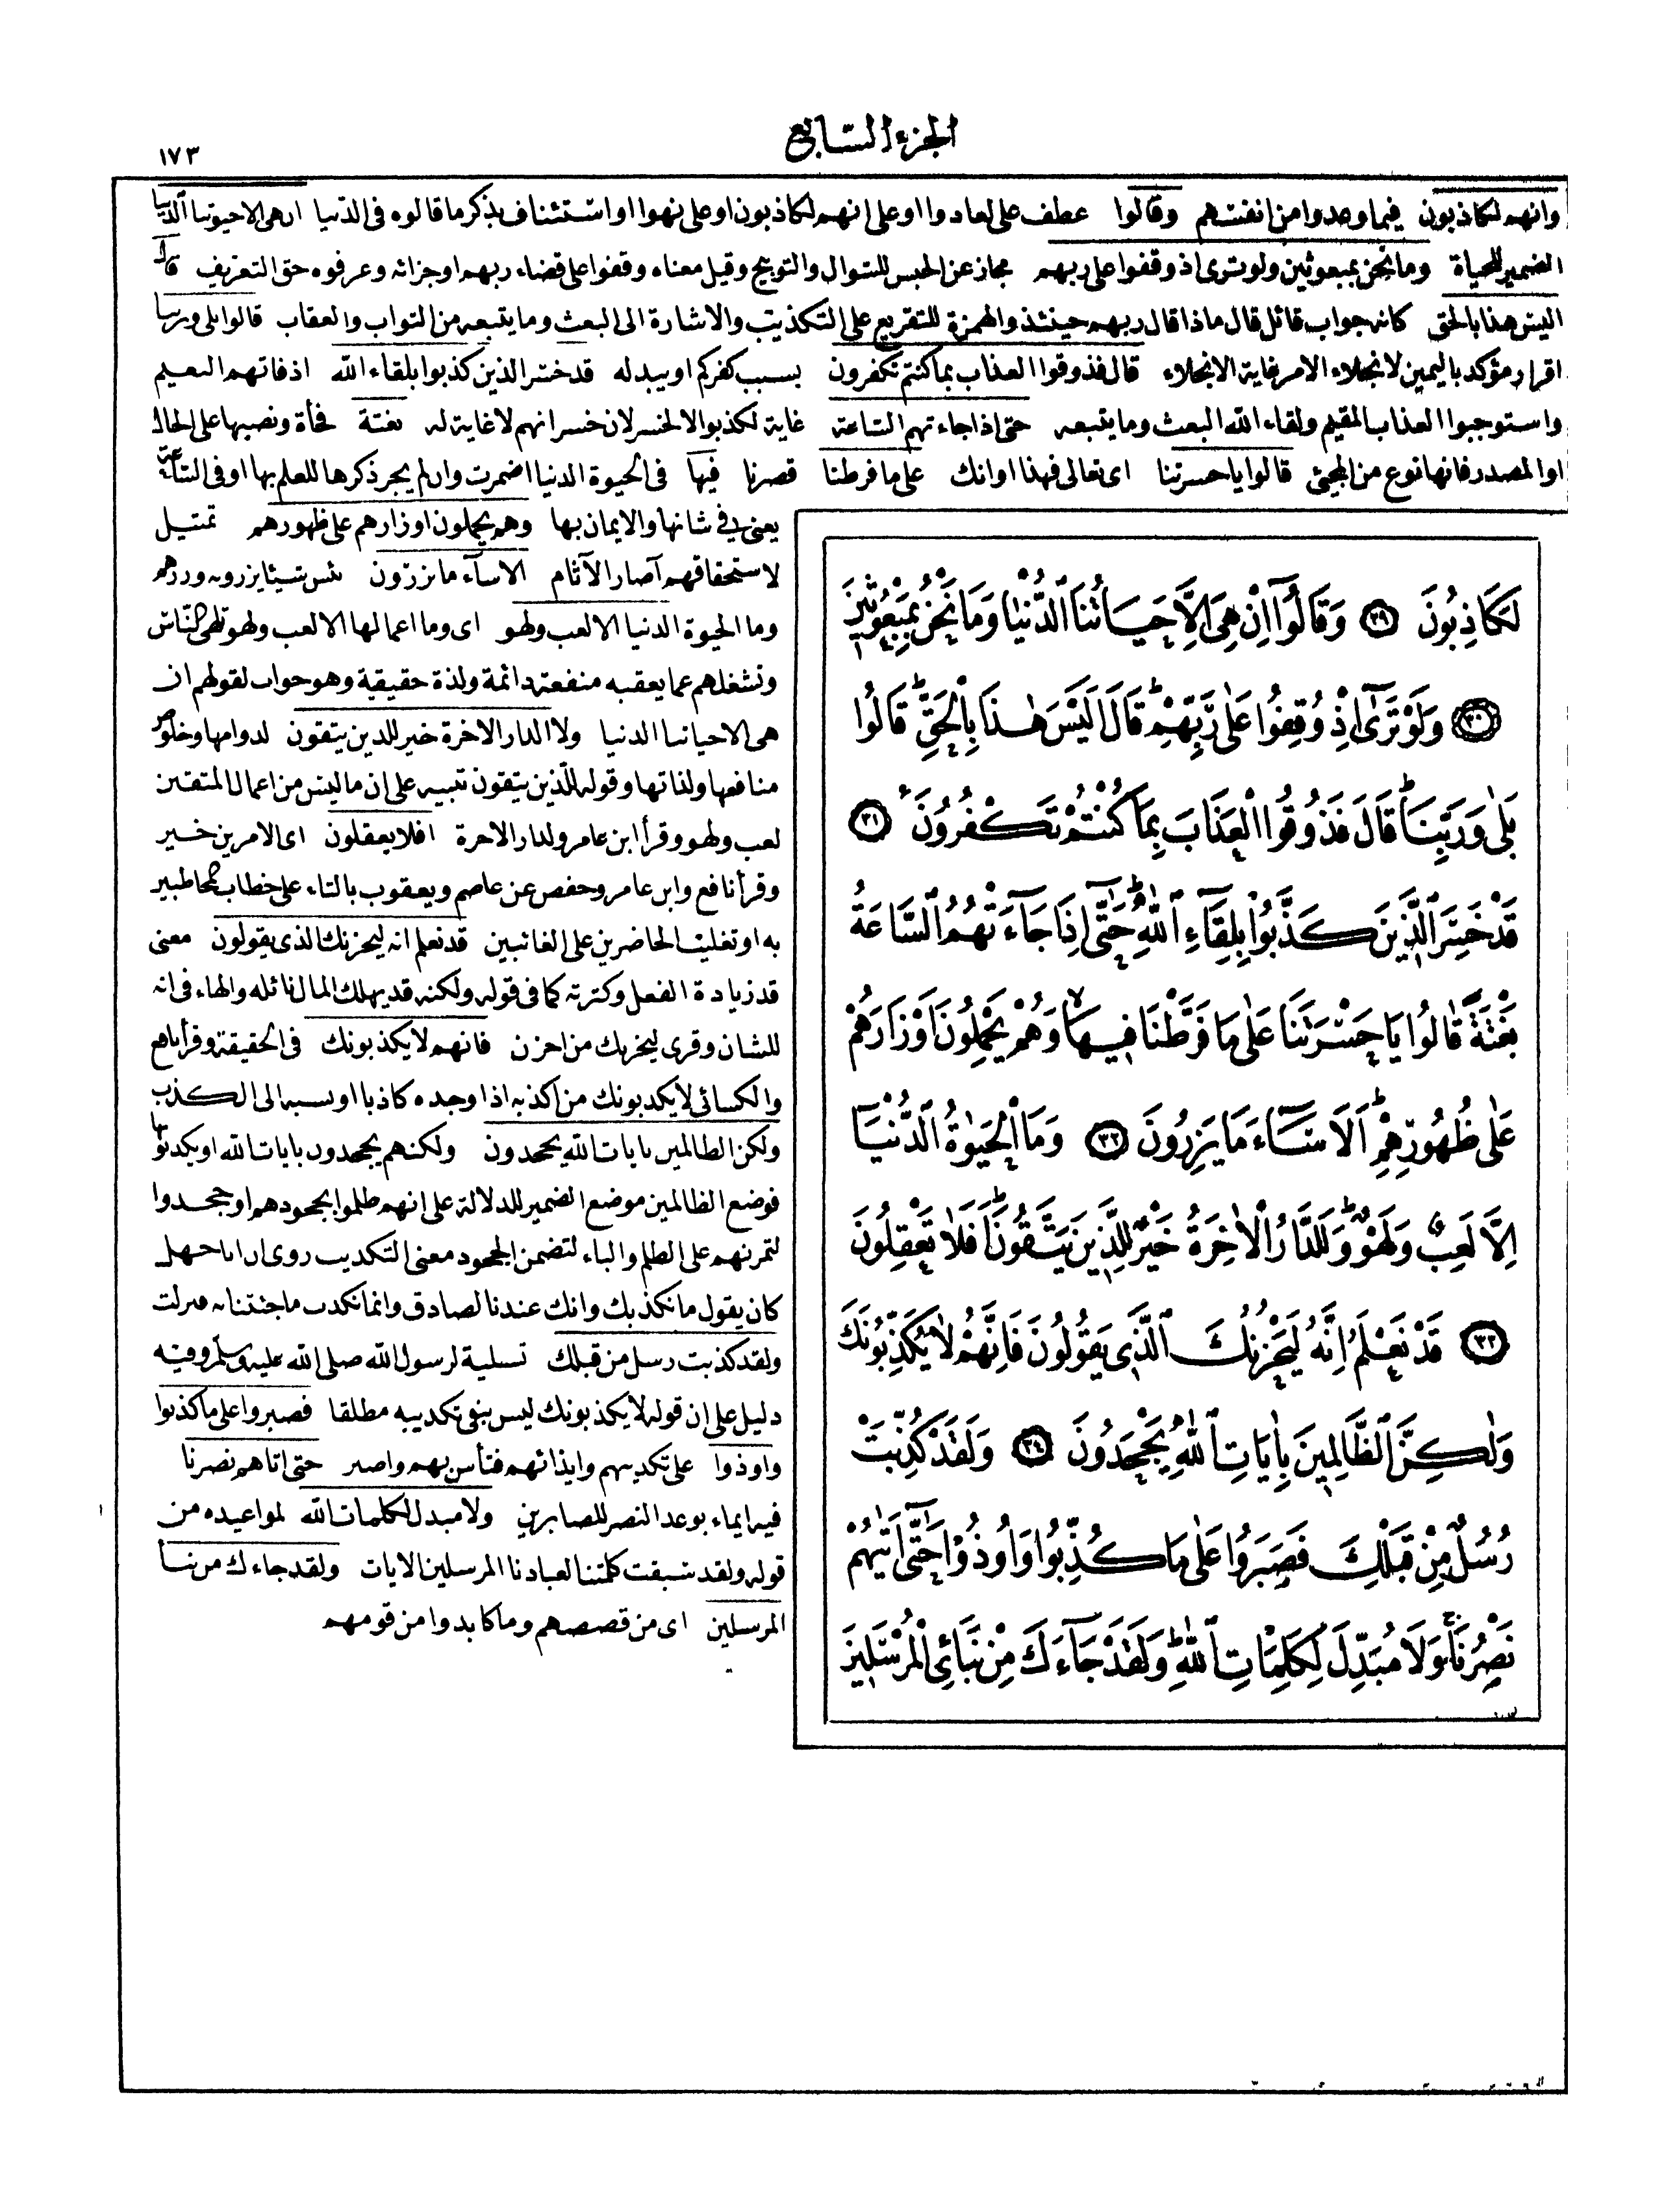 الجزء السابع
١٧٣
وانهم لكاذبون فيما وعدوا من انفسهم وقالوا عطف على لعادوا او على انهم لكاذبون او على نهوا او استئناف بذكر ما قالوه فى الدنيا ان هى الا حيوتنا الدنيا
الضمير للحياة وما نحن بمبعوثين ولو ترى اذ وقفوا على ربهم مجاز عن الحبس للسؤال والتوبيخ وقيل معناه وقفوا على قضاء ربهم او جزائه وعرفوه حق التعريف قال
اليس هذا بالحق كانه جواب قائل قال ماذا قال ربهم حينئذ والهمزة للتقريع على التكذيب والاشارة الى البعث وما يتبعه من الثواب والعقاب قالوا بلى وربنا
اقرار مؤكد باليمين لانجلاء الامر غاية الانجلاء قال فذوقوا العذاب بما كنتم تكفرون بسبب كفركم او ببدله قد خسر الذين كذبوا بلقاء الله اذ فاتهم النعيم
واستوجبوا العذاب المقيم ولقاء الله البعث وما يتبعه حتى اذا جاءتهم الساعة غاية لكذبوا لا لخسر لان خسرانهم لا غاية له بغتة فجأة ونصبها على الحال
او المصدر فانها نوع من المجئ قالوا يا حسرتنا اى تعالى فهذا اوانك على ما فرطنا قصرنا فيها فى الحيوة الدنيا اضمرت وان لم يجر ذكرها للعلم بها او فى الساعة
يعنى فى شانها والايمان بها وهم يحملون اوزارهم على ظهورهم تمثيل
لاستحقاقهم آصار الآثام الا ساء ما يزرون بئس شيئا يزرونه وزرهم
وما الحيوة الدنيا الا لعب ولهو اى وما اعمالها الا لعب ولهو تلهى الناس
وتشغلهم عما يعقبه منفعته دائمة ولذة حقيقية وهو جواب لقولهم ان
هى الا حياتنا الدنيا وللدار الاخرة خير للذين يتقون لدوامها وخلوص
منافعها ولذاتها وقوله للذين يتقون تنبيه على ان ما ليس من اعمال المتقين
لعب ولهو وقرأ ابن عامر ولدار الاخرة افلا يعقلون اى الامرين خير
وقرأ نافع وابن عامر وحفص عن عاصم ويعقوب بالتاء على خطاب المخاطبين
به او تغليب الحاضرين على الغائبين قد نعلم انه ليحزنك الذى يقولون معنى
قد زيادة الفعل وكثرته كما فى قوله ولكنه قد يهلك المال نائله والهاء فى انه
للشان وقرئ ليحزنك من احزن فانهم لا يكذبونك فى الحقيقة وقرأ نافع
والكسائى لا يكذبونك من اكذبه اذا وجده كاذبا او نسبه الى الكذب
ولكن الظالمين بايات الله يجحدون ولكنهم يجحدون بايات الله او يكذبونها
فوضع الظالمين موضع الضمير للدلالة على انهم ظلموا بجحودهم او جحدوا
لتمرنهم على الظلم والباء لتضمن الجحود معنى التكذيب روى ان ابا جهل
كان يقول ما نكذبك وانك عندنا لصادق وانما نكذب ما جئتنا به فنزلت
ولقد كذبت رسل من قبلك تسلية لرسول الله صلى الله عليه وسلم وفيه
دليل على ان قوله لا يكذبونك ليس بنفى تكذيبه مطلقا فصبروا على ما كذبوا
واوذوا على تكذيبهم وايذائهم فتأس بهم واصبر حتى اتاهم نصرنا
فيه ايماء بوعد النصر للصابرين ولا مبدل لكلمات الله لمواعيده من
قوله ولقد سبقت كلمتنا لعبادنا المرسلين الايات ولقد جاءك من نبأ
المرسلين اى من قصصهم وما كابدوا من قومهم
لَكَاذِبُونَ ٢٩ وَقَالُٓوا اِنْ هِيَ اِلَّا حَيَاتُنَا الدُّنْيَا وَمَا نَحْنُ بِمَبْعُوثِينَ
٣٠ وَلَوْ تَرٰٓى اِذْ وُقِفُوا عَلٰى رَبِّهِمْۜ قَالَ اَلَيْسَ هٰذَا بِالْحَقِّۜ قَالُوا
بَلٰى وَرَبِّنَاۜ قَالَ فَذُوقُوا الْعَذَابَ بِمَا كُنْتُمْ تَكْفُرُونَ ٣١
قَدْ خَسِرَ الَّذِينَ كَذَّبُوا بِلِقَٓاءِ اللّٰهِۜ حَتّٰٓى اِذَا جَٓاءَتْهُمُ السَّاعَةُ
بَغْتَةً قَالُوا يَا حَسْرَتَنَا عَلٰى مَا فَرَّطْنَا فِيهَاۙ وَهُمْ يَحْمِلُونَ اَوْزَارَهُمْ
عَلٰى ظُهُورِهِمْۜ اَلَا سَٓاءَ مَا يَزِرُونَ ٣٢ وَمَا الْحَيٰوةُ الدُّنْيَٓا
اِلَّا لَعِبٌ وَلَهْوٌۜ وَلَلدَّارُ الْاٰخِرَةُ خَيْرٌ لِلَّذِينَ يَتَّقُونَۜ اَفَلَا تَعْقِلُونَ
٣٣ قَدْ نَعْلَمُ اِنَّهُ لَيَحْزُنُكَ الَّذِي يَقُولُونَ فَاِنَّهُمْ لَا يُكَذِّبُونَكَ
وَلٰكِنَّ الظَّالِمِينَ بِاٰيَاتِ اللّٰهِ يَجْحَدُونَ ٣٤ وَلَقَدْ كُذِّبَتْ
رُسُلٌ مِنْ قَبْلِكَ فَصَبَرُوا عَلٰى مَا كُذِّبُوا وَاُوذُوا حَتّٰٓى اَتٰيهُمْ
نَصْرُنَاۚ وَلَا مُبَدِّلَ لِكَلِمَاتِ اللّٰهِۚ وَلَقَدْ جَٓاءَكَ مِنْ نَبَائِ الْمُرْسَلِينَ